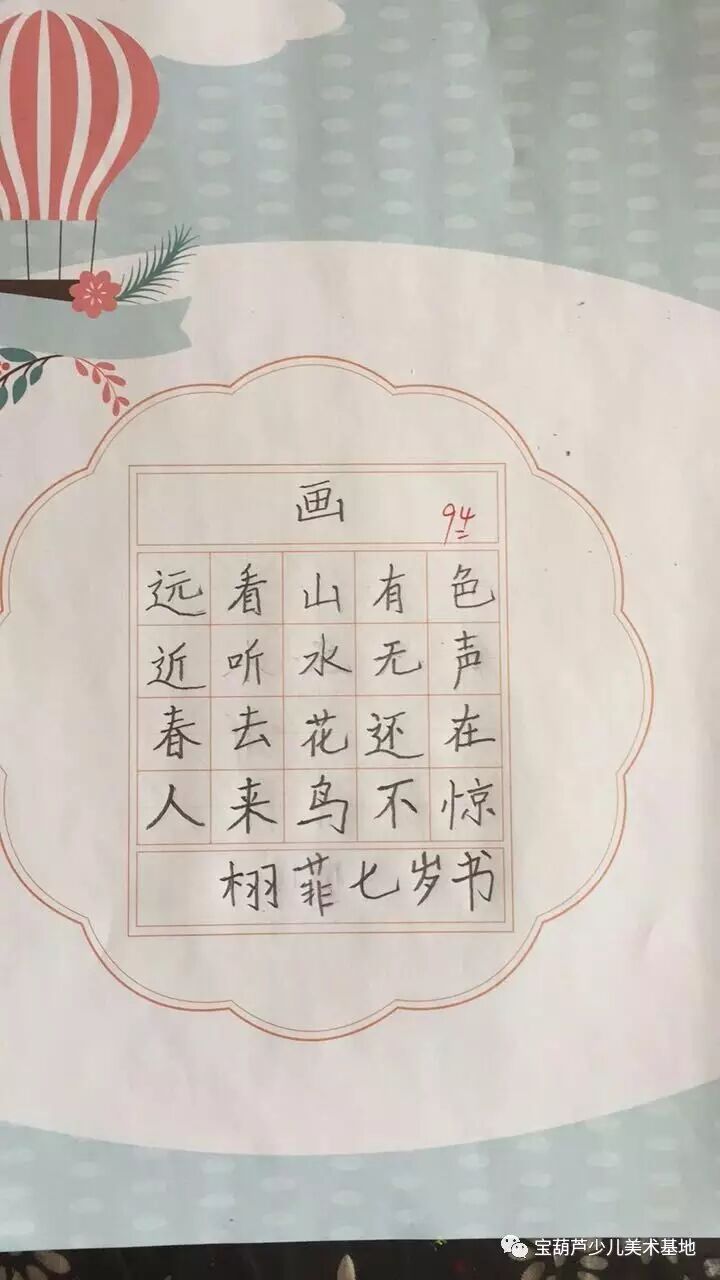 画
94
远看山有色
近听水无声
春去花还在
人来鸟不惊
栩菲七岁书
宝葫芦少儿美术基地